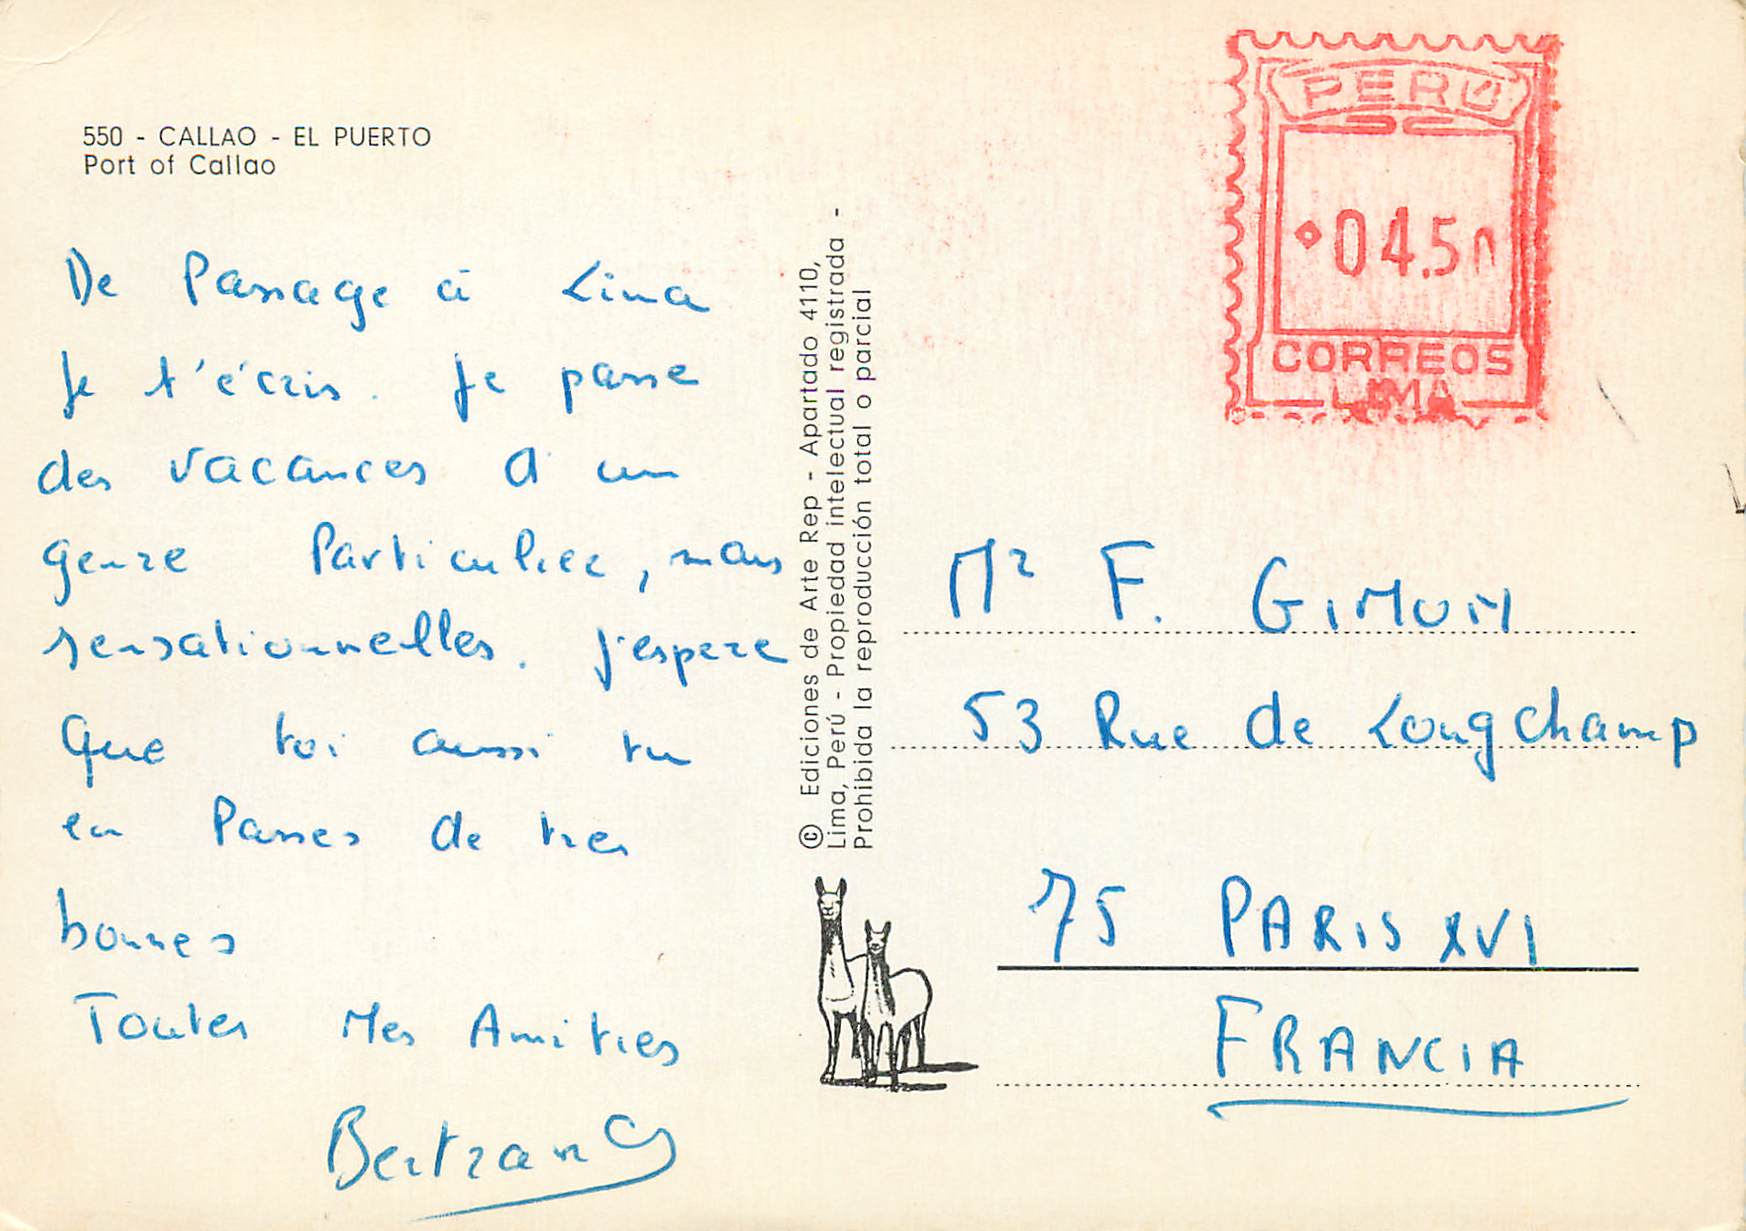 550 - CALLAO - EL PUERTO
Port of Callao
De Passage à Lima
Je t'écris. Je passe
des vacances d'un
genre Particulier, mais
sensationnelles. J'espere
Que toi aussi tu
en Passes de tres
bonnes
Toutes Mes Amities
Bertrand
© Ediciones de Arte Rep - Apartado 4110,
Lima, Perú - Propiedad intelectual registrada -
Prohibida la reproducción total o parcial
PERÚ
04.50
CORREOS
LIMA
Mr F. GIMON
53 Rue de Longchamp
75 PARIS XVI
FRANCIA